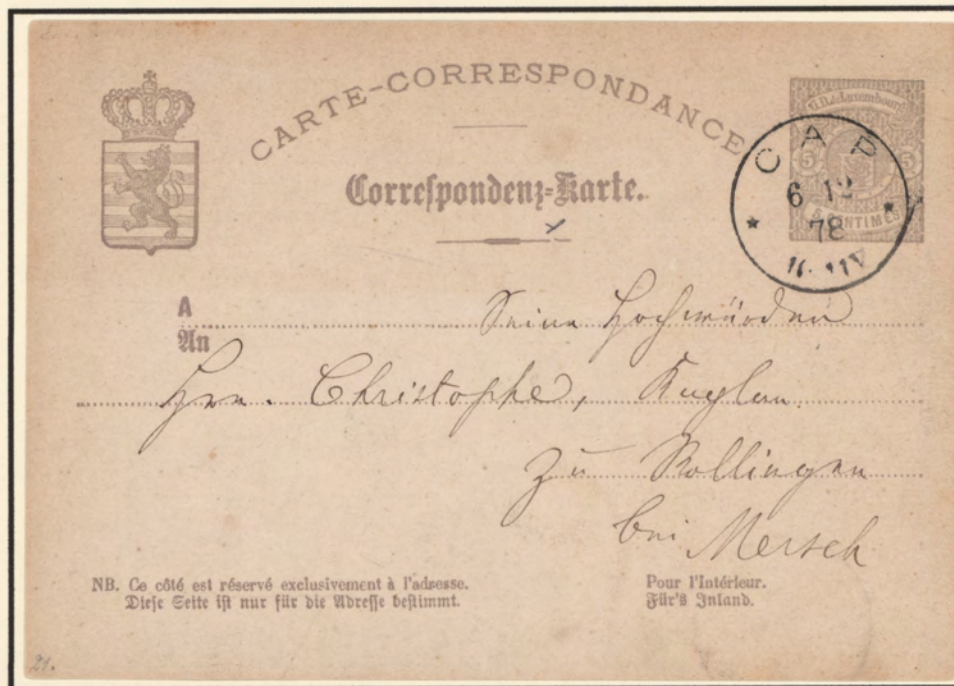 CARTE-CORRESPONDANCE
G.D. de Luxembourg
5 5
CENTIMES
CAP
6 12
78
Correspondenz-Karte.
A
An
Seine Hochwürden
Hrn. Christophe, Kaplan
zu Rollingen
bei Mersch
NB. Ce côté est réservé exclusivement à l'adresse.
Diese Seite ist nur für die Adresse bestimmt.
Pour l'Intérieur.
Für's Inland.
21.